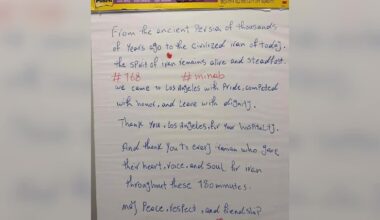 From the ancient Persian of thousands
of years ago to the civilized iran of today,
the spirit of iran remains alive and steadfast.
#168 #minab
we came to Los Angeles with Pride, competed
with honor, and Leave with dignity.
Thank you, Los Angeles, for your hospitality.
And thank you to every iranian who gave
their heart, voice, and soul for iran
throughout these 180 minutes.
may Peace, respect, and friendship